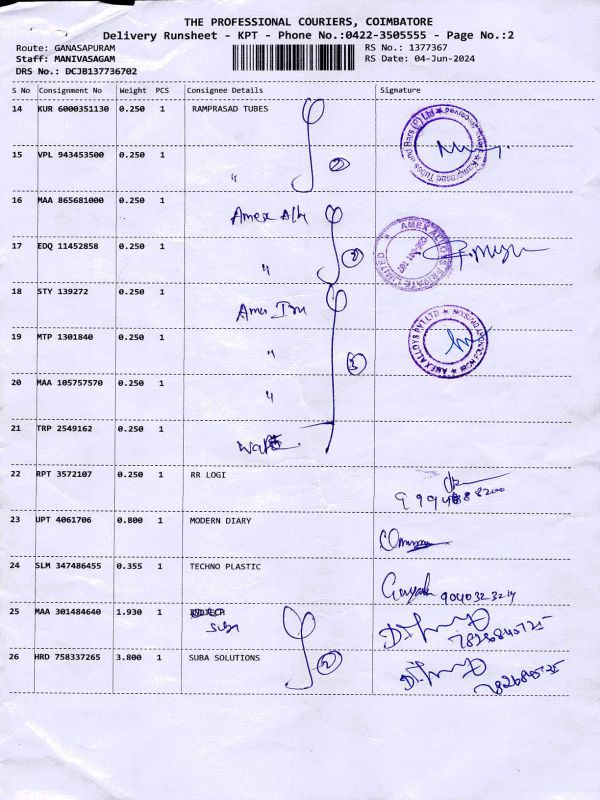 THE PROFESSIONAL COURIERS, COIMBATORE
Delivery Runsheet - KPT - Phone No.:0422-3505555 - Page No.:2
Route: GANASAPURAM RS No.: 1377367
Staff: MANIVASAGAM RS Date: 04-Jun-2024
DRS No.: DCJB137736702
S No Consignment No Weight PCS Consignee Details Signature
14 KUR 6000351130 0.250 1 RAMPRASAD TUBES
15 VPL 943453500 0.250 1 " 2
16 MAA 865681000 0.250 1 Amex Alloy
17 EDQ 11452858 0.250 1 " 2
18 STY 139272 0.250 1 Amex Iron
19 MTP 1301840 0.250 1 " 3
20 MAA 105757570 0.250 1 "
21 TRP 2549162 0.250 1
22 RPT 3572107 0.250 1 RR LOGI
23 UPT 4061706 0.800 1 MODERN DIARY
24 SLM 347486455 0.355 1 TECHNO PLASTIC
9040323219
25 MAA 301484640 1.930 1 Suba
26 HRD 758337265 3.800 1 SUBA SOLUTIONS 2